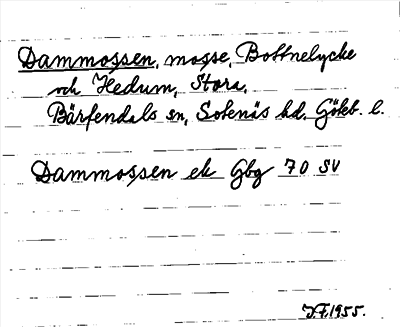 Dammossen, mosse, Bottnelycke
och Hedum, Stora,
Bärfendals sn, Sotenäs hd. Göteb. l.
Dammossen ek Gbg 70 SV
J.F.1955.